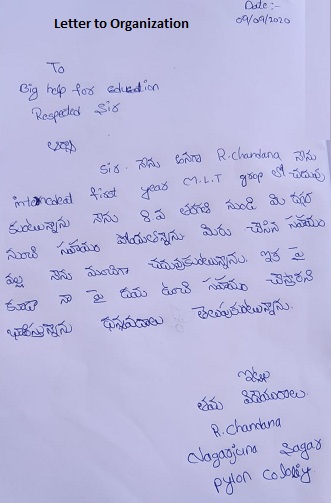 Date:-
09/09/2020
Letter to Organization
To
Big help for education
Respected Sir
Sir. నేను అనగా R.chandana నేను
first year M.L.T grop లో చదువు
కుంటున్నాను నేను 8 వ తరగతి నుండి మీ దగ్గర
నుంచి సహాయం పోందుతున్నాను మీరు చేసిన సహాయం
వల్ల నేను మంచిగా చదువుకుంటున్నాను. ఇక పై
కూడా నా పై దయ ఉంచి సహాయం చేస్తారని
భావిస్తున్నాను ధన్యవాదాలు తెలుపుకుంటున్నాను.
ఇట్లు
తమ విధేయురాలు.
R.chandana
Nagarjuna Sagar
pylon colony